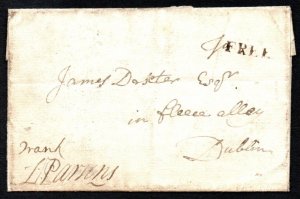 FREE
James Dexter Esqr.
in fleece alley
Dublin
frank
L Parsons